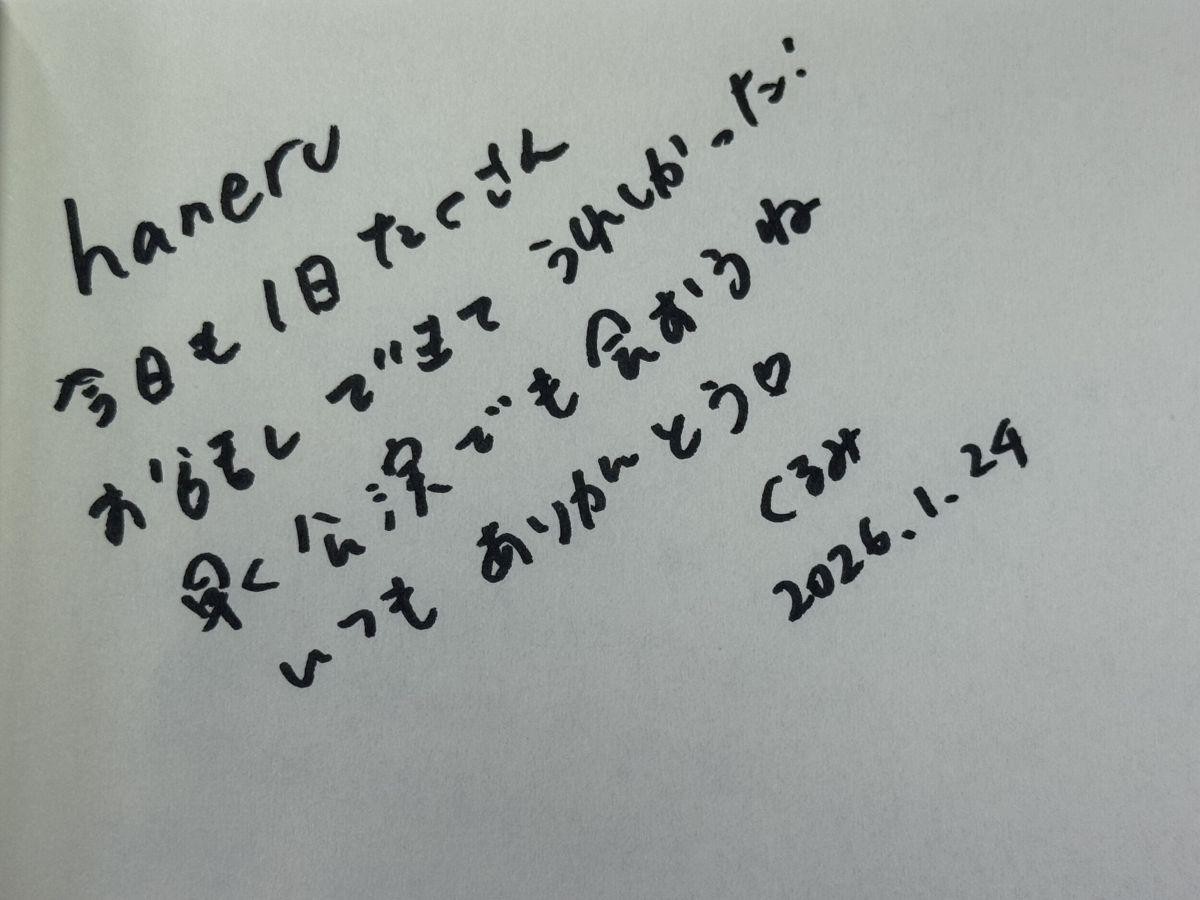 haneru
今日も1日たくさん
お話しできて うれしかった!
早く会決でも会おうね
いつもありがとう♡
くるみ
2026.1.24